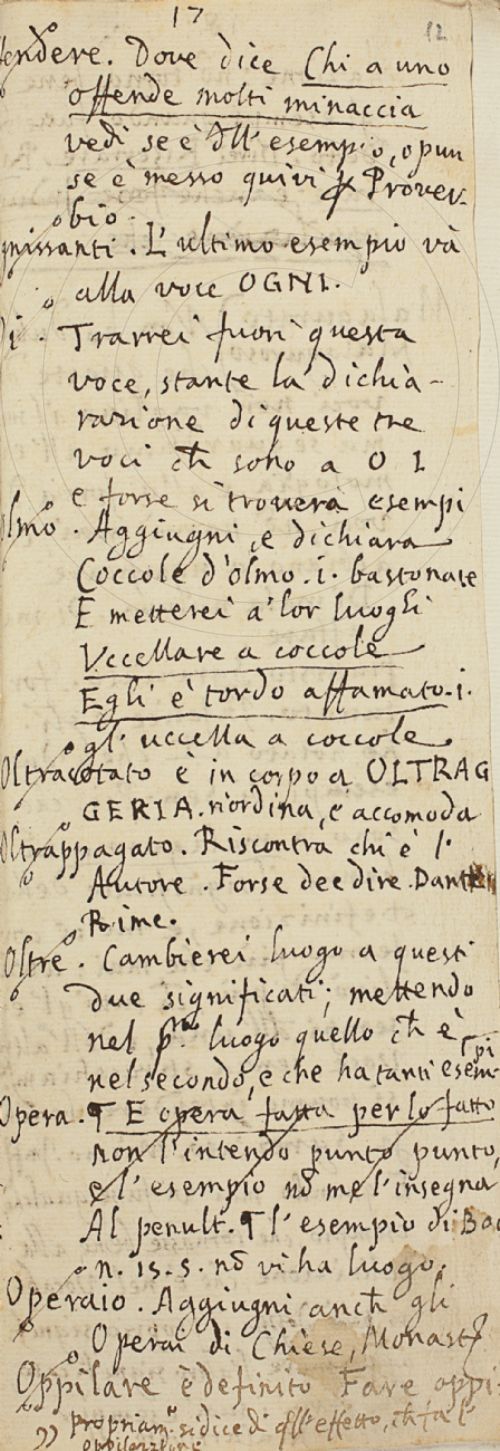 17
12
fendere. Dove dice Chi a uno
offende molti minaccia
vedi se è dll' esempio, o pur
se è messo quivi Prover-
bio.
gnissanti. L'ultimo esempio và
alla voce OGNI.
Di. Trarrei fuori questa
voce, stante la dichia-
razione di queste tre
voci ch sono a O I
e forse si troverà esempi
Olmo. Aggiugni, e dichiara
Coccole d'olmo .i. bastonate
E metterei a' lor luoghi
Vccellare a coccole
Egli è tordo affamato .i.
gl' uccella a coccole
Oltracotato è in corpo a OLTRAG
GERIA. riordina, e accomoda
Oltrappagato. Riscontra chi è l'
Autore. Forse dee dire. Dante
Rime.
Oltre. Cambierei luogo a questi
due significati; mettendo
nel pmo luogo quello ch è
nel secondo, e che ha tanti esem-
pi
Opera. ¶ E opera fatta per lo fatto
non l'intendo punto punto,
e l'esempio nō me l'insegna
Al penult. ¶ l'esempio di Boc
n. 15. 5. nō vi ha luogo.
Operaio. Aggiugni anch gli
Operai di Chiese, Monast
Oppilare è definito Fare oppi-
Propriam.e si dice di qll' effetto, ch fa l'
oppilazione